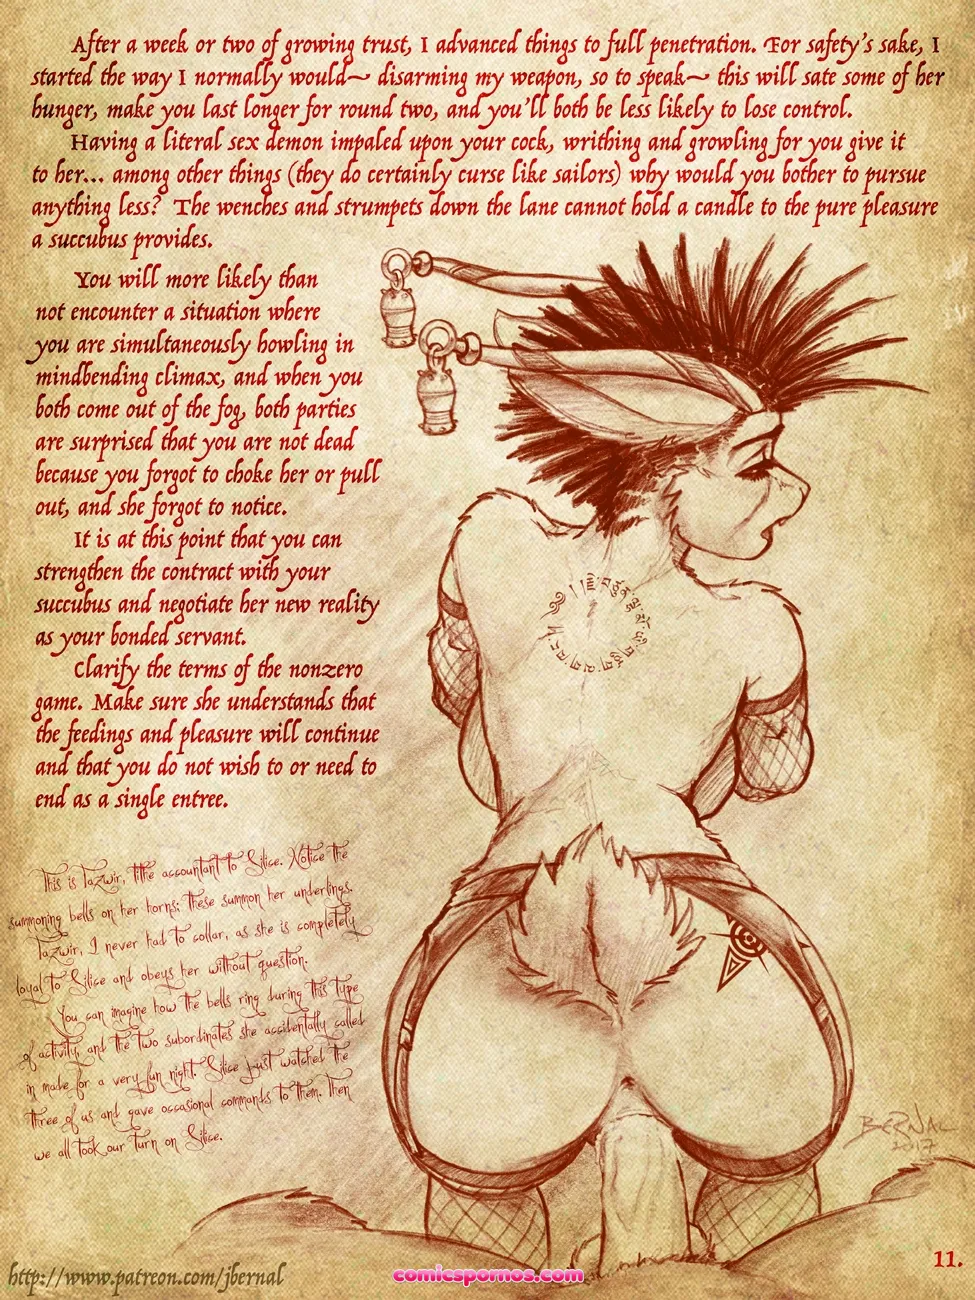 After a week or two of growing trust, I advanced things to full penetration. For safety's sake, I
started the way I normally would~ disarming my weapon, so to speak~ this will sate some of her
hunger, make you last longer for round two, and you'll both be less likely to lose control.
Having a literal sex demon impaled upon your cock, writhing and growling for you give it
to her... among other things (they do certainly curse like sailors) why would you bother to pursue
anything less? The wenches and strumpets down the lane cannot hold a candle to the pure pleasure
a succubus provides.
You will more likely than
not encounter a situation where
you are simultaneously howling in
mindbending climax, and when you
both come out of the fog, both parties
are surprised that you are not dead
because you forgot to choke her or pull
out, and she forgot to notice.
It is at this point that you can
strengthen the contract with your
succubus and negotiate her new reality
as your bonded servant.
Clarify the terms of the nonzero
game. Make sure she understands that
the feedings and pleasure will continue
and that you do not wish to or need to
end as a single entree.
This is Tazwir, tithe accountant to Silice. Notice the
summoning bells on her horns; these summon her underlings.
Tazwir, I never had to collar, as she is completely
loyal to Silice and obeys her without question.
You can imagine how the bells ring during this type
of activity, and the two subordinates she accidentally called
in made for a very fun night. Silice just watched the
three of us and gave occasional commands to them. Then
we all took our turn on Silice.
BERNAL
2017
11.
http://www.patreon.com/jbernal
comicspornos.com